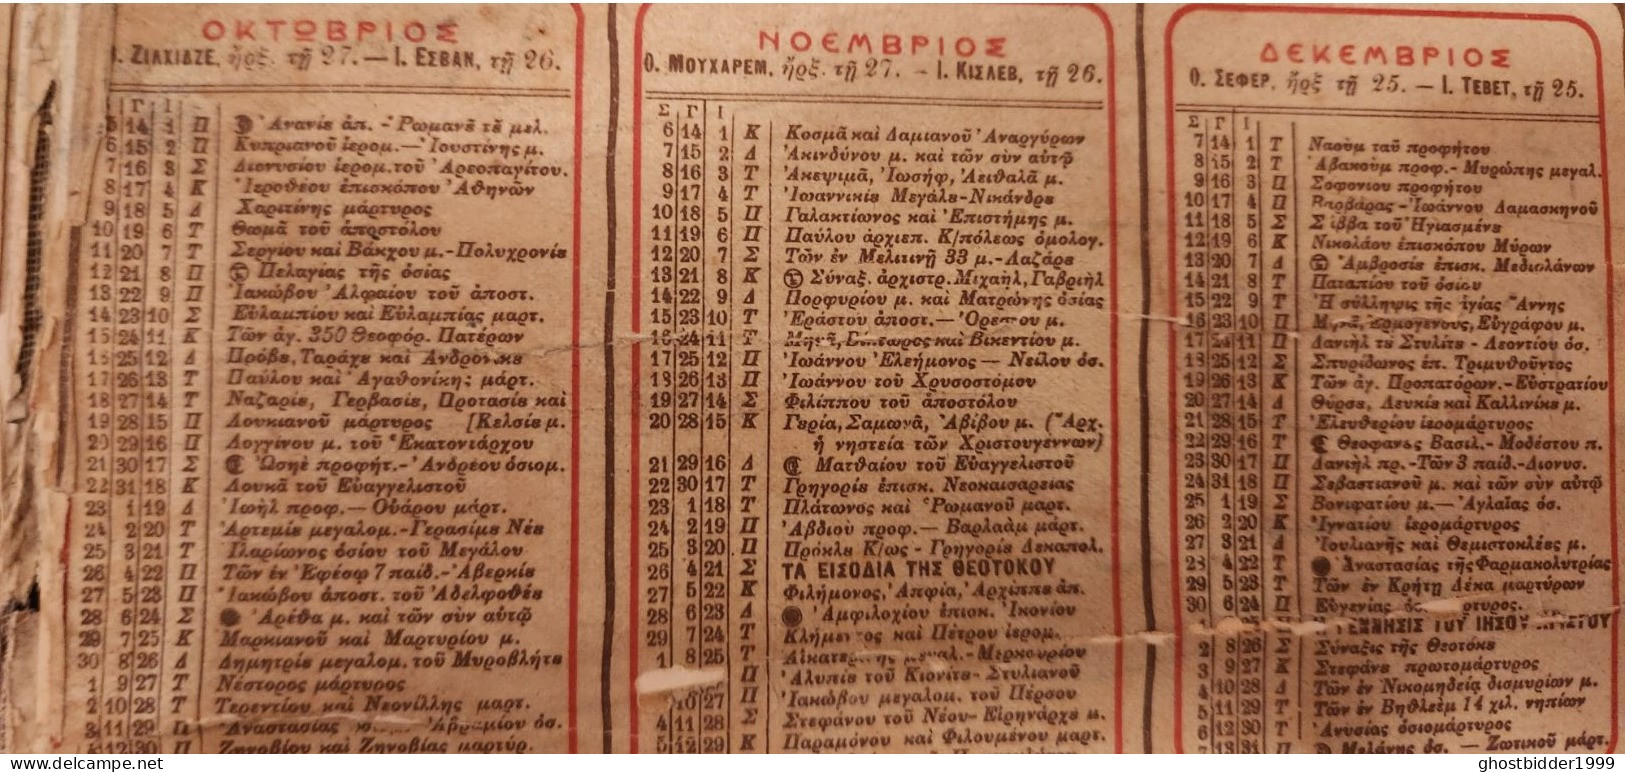 ΟΚΤΩΒΡΙΟΣ
ΖΙΛΧΙΔΖΕ, ἤρξ. τῇ 27. — Ι. ΕΣΒΑΝ, τῇ 26.
Γ Ι
5 14 1 Π Ἀνανίε ἀπ. - Ῥωμανε τε μελ.
6 15 2 Π Κυπριανοῦ ἱερομ.—Ἰουστίνης μ.
7 16 3 Σ Διονυσίου ἱερομ. τοῦ Ἀρεοπαγίτου.
8 17 4 Κ Ἱεροθέου ἐπισκόπου Ἀθηνῶν
9 18 5 Δ Χαριτίνης μάρτυρος
10 19 6 Τ Θωμᾶ τοῦ ἀποστόλου
11 20 7 Τ Σεργίου καὶ Βάκχου μ.-Πολυχρονίε
12 21 8 Π Πελαγίας τῆς ὁσίας
13 22 9 Π Ἰακώβου Ἀλφαίου τοῦ ἀποστ.
14 23 10 Σ Εὐλαμπίου καὶ Εὐλαμπίας μαρτ.
15 24 11 Κ Τῶν ἁγ. 350 Θεοφόρ. Πατέρων
16 25 12 Δ Πρόβε, Ταράχε καὶ Ἀνδρονίκε
17 26 13 Τ Παύλου καὶ Ἀγαθονίκης μάρτ.
18 27 14 Τ Ναζαρίε, Γερβασίε, Προτασίε καὶ
19 28 15 Π Λουκιανοῦ μάρτυρος [Κελσίε μ.
20 29 16 Π Λογγίνου μ. τοῦ Ἑκατοντάρχου
21 30 17 Σ Ὡσηὲ προφήτ.-Ἀνδρέου ὁσιομ.
22 31 18 Κ Λουκᾶ τοῦ Εὐαγγελιστοῦ
23 1 19 Δ Ἰωὴλ προφ.— Οὐάρου μάρτ.
24 2 20 Τ Ἀρτεμίε μεγαλομ.-Γερασίμε Νέε
25 3 21 Τ Ἱλαρίωνος ὁσίου τοῦ Μεγάλου
26 4 22 Π Τῶν ἐν Ἐφέσῳ 7 παίδ.-Ἀβερκίε
27 5 23 Π Ἰακώβου ἀποστ. τοῦ Ἀδελφοθέε
28 6 24 Σ Ἀρέθα μ. καὶ τῶν σὺν αὐτῷ
29 7 25 Κ Μαρκιανοῦ καὶ Μαρτυρίου μ.
30 8 26 Δ Δημητρίε μεγαλομ. τοῦ Μυροβλήτε
1 9 27 Τ Νέστορος μάρτυρος
2 10 28 Τ Τερεντίου καὶ Νεονίλλης μαρτ.
3 11 29 Π Ἀναστασίας Ἀβραμίου ὁσ.
4 12 30 Π Ζηνοβίου καὶ Ζηνοβίας μαρτύρ.
ΝΟΕΜΒΡΙΟΣ
Ο. ΜΟΥΧΑΡΕΜ, ἤρξ. τῇ 27. - Ι. ΚΙΣΛΕΒ, τῇ 26.
Σ Γ Ι
6 14 1 Κ Κοσμᾶ καὶ Δαμιανοῦ Ἀναργύρων
7 15 2 Δ Ἀκινδύνου μ. καὶ τῶν σὺν αὐτῷ
8 16 3 Τ Ἀκεψιμᾶ, Ἰωσήφ, Ἀειθαλᾶ μ.
9 17 4 Τ Ἰωαννικίε Μεγάλε-Νικάνδρε
10 18 5 Π Γαλακτίωνος καὶ Ἐπιστήμης μ.
11 19 6 Π Παύλου ἀρχιεπ. Κ/πόλεως ὁμολογ.
12 20 7 Σ Τῶν ἐν Μελιτινῇ 33 μ.-Λαζάρε
13 21 8 Κ Σύναξ. ἀρχιστρ. Μιχαήλ, Γαβριὴλ
14 22 9 Δ Πορφυρίου μ. καὶ Ματρώνης ὁσίας
15 23 10 Τ Ἐράστου ἀποστ.— Ὀρέστου μ.
16 24 11 Τ Μηνᾶ, Βίκτωρος καὶ Βικεντίου μ.
17 25 12 Π Ἰωάννου Ἐλεήμονος — Νείλου ὁσ.
18 26 13 Π Ἰωάννου τοῦ Χρυσοστόμου
19 27 14 Σ Φιλίππου τοῦ ἀποστόλου
20 28 15 Κ Γερία, Σαμωνᾶ, Ἀβίβου μ. (Ἄρχ.
ἡ νηστεία τῶν Χριστουγέννων)
21 29 16 Δ Ματθαίου τοῦ Εὐαγγελιστοῦ
22 30 17 Τ Γρηγορίε ἐπισκ. Νεοκαισαρείας
23 1 18 Τ Πλάτωνος καὶ Ῥωμανοῦ μαρτ.
24 2 19 Π Ἀβδιοὺ προφ.— Βαρλαὰμ μάρτ.
25 3 20 Π Πρόκλε Κ/ως - Γρηγορίε Δεκαπολ.
26 4 21 Σ ΤΑ ΕΙΣΟΔΙΑ ΤΗΣ ΘΕΟΤΟΚΟΥ
27 5 22 Κ Φιλήμονος, Ἀπφία, Ἀρχίππε ἀπ.
28 6 23 Δ Ἀμφιλοχίου ἐπισκ. Ἰκονίου
29 7 24 Τ Κλήμεντος καὶ Πέτρου ἱερομ.
1 8 25 Τ Αἰκατερίνης μεγαλ.-Μερκουρίου
Π Ἀλυπίε τοῦ Κιονίτε-Στυλιανοῦ
10 27 Π Ἰακώβου μεγαλομ. τοῦ Πέρσου
4 11 28 Σ Στεφάνου τοῦ Νέου-Εἰρηνάρχε μ.
5 12 29 Κ Παραμόνου καὶ Φιλουμένου μαρτ.
ΔΕΚΕΜΒΡΙΟΣ
Ο. ΣΕΦΕΡ, ἤρξ τῇ 25. — Ι. ΤΕΒΕΤ, τῇ 25.
Σ Γ Ι
7 14 1 Τ Ναοὺμ τοῦ προφήτου
8 15 2 Τ Ἀβακοὺμ προφ.-Μυρώπης μεγαλ.
9 16 3 Π Σοφονίου προφήτου
10 17 4 Π Βαρβάρας-Ἰωάννου Δαμασκηνοῦ
11 18 5 Σ Σάββα τοῦ Ἡγιασμένε
12 19 6 Κ Νικολάου ἐπισκόπου Μύρων
13 20 7 Δ Ἀμβροσίε ἐπισκ. Μεδιολάνων
14 21 8 Τ Παταπίου τοῦ ὁσίου
15 22 9 Τ Ἡ σύλληψις τῆς ἁγίας Ἄννης
16 23 10 Π Μηνᾶ, Ἑρμογένους, Εὐγράφου μ.
17 24 11 Π Δανιὴλ τε Στυλίτε - Λεοντίου ὁσ.
18 25 12 Σ Σπυρίδωνος ἐπ. Τριμυθοῦντος
19 26 13 Κ Τῶν ἁγ. Προπατόρων.-Εὐστρατίου
20 27 14 Δ Θύρσε, Λευκίε καὶ Καλλινίκε μ.
21 28 15 Τ Ἐλευθερίου ἱερομάρτυρος
22 29 16 Τ Θεοφανες Βασιλ.-Μοδέστου π.
23 30 17 Π Δανιὴλ πρ.-Τῶν 3 παίδ.-Διονυσ.
24 31 18 Π Σεβαστιανοῦ μ. καὶ τῶν σὺν αὐτῷ
25 1 19 Σ Βονιφατίου μ.— Ἀγλαΐας ὁσ.
26 2 20 Κ Ἰγνατίου ἱερομάρτυρος
27 3 21 Δ Ἰουλιανῆς καὶ Θεμιστοκλέες μ.
28 4 22 Τ Ἀναστασίας τῆς Φαρμακολυτρίας
29 5 23 Τ Τῶν ἐν Κρήτῃ Δέκα μαρτύρων
30 6 24 Π Εὐγενίας
25 Π Η ΓΕΝΝΗΣΙΣ ΤΟΥ ΙΗΣΟΥ ΧΡΙΣΤΟΥ
2 8 26 Σ Σύναξις τῆς Θεοτόκε
3 9 27 Κ Στεφάνε πρωτομάρτυρος
4 10 28 Δ Τῶν ἐν Νικομηδείᾳ δισμυρίων μ.
5 11 29 Τ Τῶν ἐν Βηθλεὲμ 14 χιλ. νηπίων
6 12 30 Τ Ἀνυσίας ὁσιομάρτυρος
7 13 31 Π Μελάνης ὁσ. — Ζωτικοῦ μάρτ.
https://www.delcampe.net
ghostbidder1999